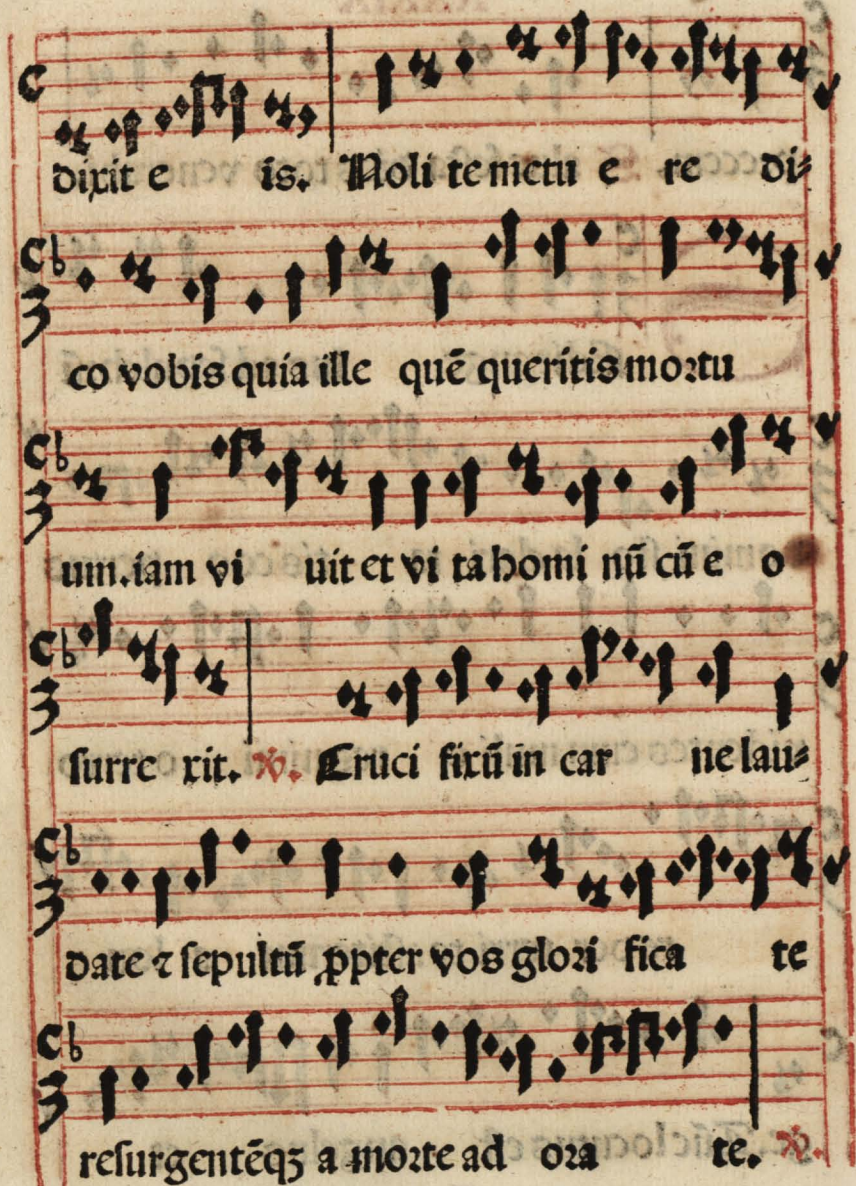 dixit e is. Noli te metu e re di⸗
co vobis quia ille quē queritis moꝛtu
um. iam vi uit et vi ta homi nū cū e o
surre xit. ℣. Cruci fixū in car ne lau⸗
date ⁊ sepultū ꝓpter vos gloꝛi fica te
resurgentēqꝫ a moꝛte ad oꝛa te. ℣.